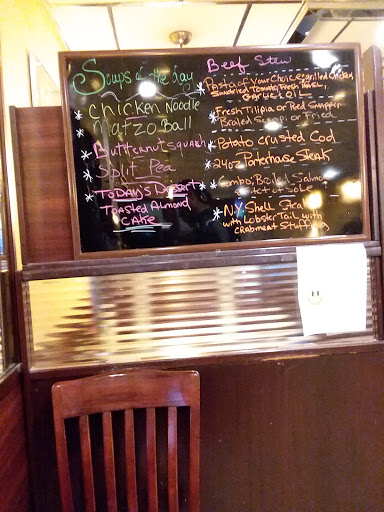 Soups of the day
* Chicken Noodle
* Matzo Ball
* Butternut squash
* Split Pea
* TODAY'S Dessert
Toasted Almond
CAKE
Beef Stew
* Pasta of your choice grilled chicken
Sundried Tomato, Fresh Basil,
GARLIC & OIL
* Fresh Tilipia or Red Snapper
Broiled Scampi or Fried
* Potato crusted Cod
* 24oz Porterhouse Steak
* Combo, Broiled Salmon
Filet of Sole
* N.Y. Shell Steak
with Lobster Tail with
crabmeat Stuffing